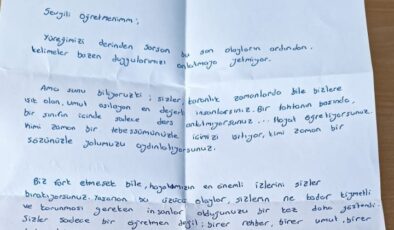 Sevgili Öğretmenimm;
Yüreğimizi derinden sarsan bu son olayların ardından,
kelimeler bazen duygularımızı anlatmaya yetmiyor.
Ama şunu biliyoruz ki; sizler, karanlık zamanlarda bile bizlere
ışık olan, umut aşılayan en değerli insanlarsınız. Bir tahtanın başında,
bir sınıfın içinde sadece ders anlatmıyorsunuz... Hayat öğretiyorsunuz.
Kimi zaman bir tebessümünüzle içimizi ısıtıyor, kimi zaman bir
sözünüzle yolumuzu aydınlatıyorsunuz.
Biz fark etmesek bile, hayatımızın en önemli izlerini sizler
bırakıyorsunuz. Yaşanan bu üzücü olaylar, sizlerin ne kadar kıymetli
ve korunması gereken insanlar olduğunuzu bir kez daha gösterdi.
Sizler sadece bir öğretmen değil; birer rehber, birer umut, birer